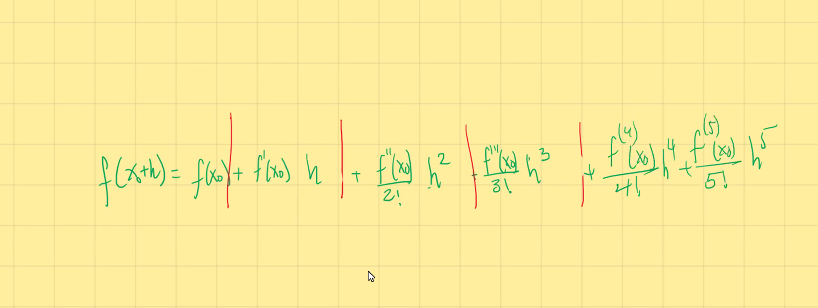 f(x₀+h) = f(x₀) + f'(x₀) h + f''(x₀)/2! h² + f'''(x₀)/3! h³ + f⁽⁴⁾(x₀)/4! h⁴ + f⁽⁵⁾(x₀)/5! h⁵